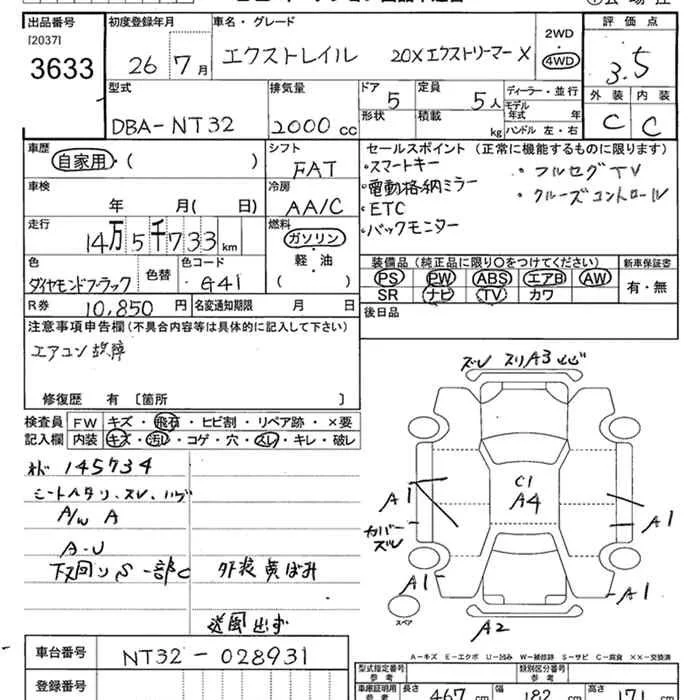 出品番号 初度登録年月 車名・グレード 評価点
[2037]
3633 26 7月 エクストレイル 20Xエクストリーマー X 2WD 4WD 3.5
型式 排気量 ドア 5 定員 5人 ディーラー・並行 外装 内装
DBA-NT32 2000cc 形状 積載 kg モデル年式 年 C C
ハンドル 左・右
車歴 自家用・( ) シフト FAT セールスポイント (正常に機能するものに限ります)
・スマートキー ・フルセグTV
車検 年 月( 日) 冷房 AA/C ・電動格納ミラー ・クルーズコントロール
・ETC
走行 14万5千733km 燃料 ガソリン 軽・油 ( ) ・バックモニター
色 ダイヤモンドブラック 色替 色コード G41 装備品 (純正品に限り○をつけてください) 新車保証書
PS PW ABS エアB AW 有・無
SR ナビ TV カワ
R券 10,850円 名変通知期限 月 日 後日品
注意事項申告欄 (不具合内容等は具体的に記入して下さい)
エアコン故障
修復歴 有 [箇所 ]
検査員 FW キズ・飛石・ヒビ割・リペア跡・×要
記入欄 内装 キズ・汚レ・コゲ・穴・スレ・キレ・破レ
145734
シートヘタリ、スレ、ハゲ
A/W A
A-U
下回りS一部C 外装点ぼみ
送風出ず
ズレ スリA3
C1
A4
A1
A1
カバーズレ
A1
A1
スペア
A2
A-キズ E-エクボ U-凹み W-補修跡 S-サビ C-腐食 ××-交換済
車台番号 NT32-028931
登録番号
型式指定番号 参考 類別区分番号 参考
車庫証明用 参考 長さ 467cm 幅 182cm 高さ 171cm